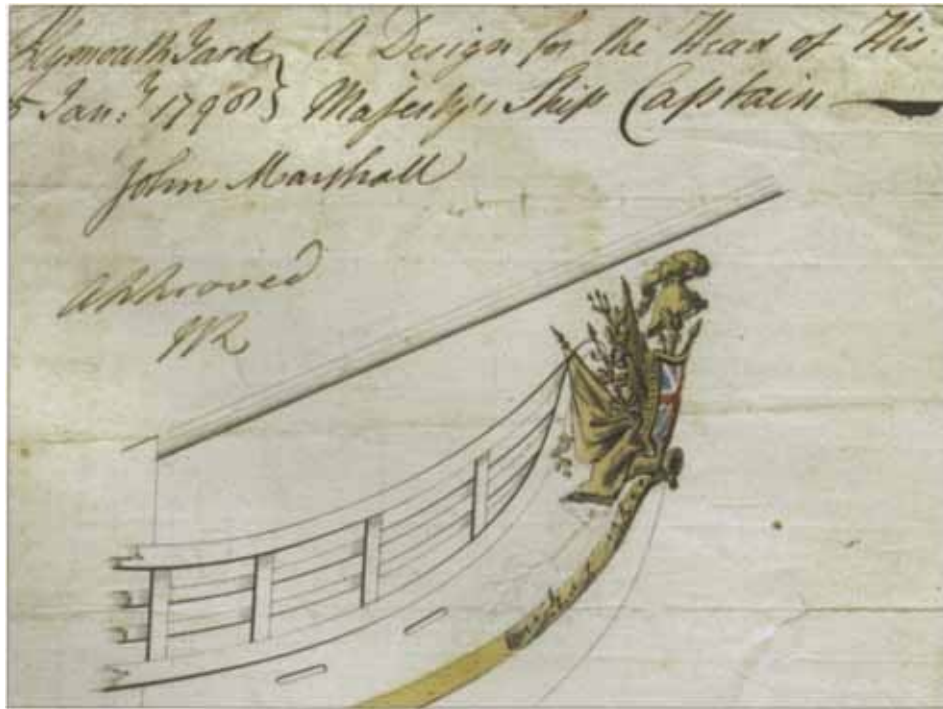 Plymouth Yard } A Design for the Head of His
5 Jan:y } Majesty's Ship Captain
John Marshall
Approved